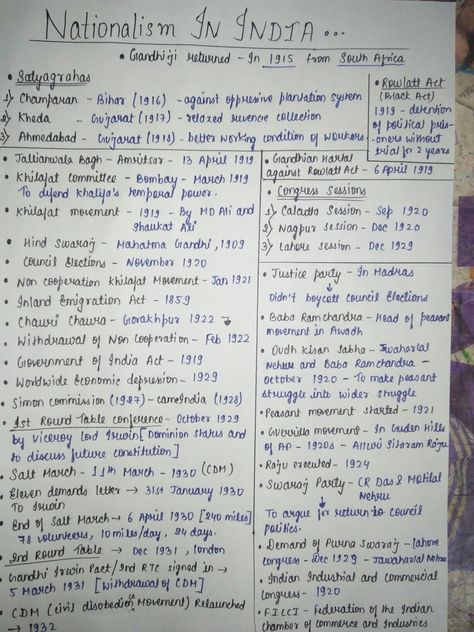 Nationalism In INDIA...
• Gandhi ji returned - In 1915 from South Africa
• Satyagrahas
1) Champaran - Bihar (1916) - against oppresive planvation system
2) Kheda - Gujarat (1917) - relaxed revence collection
3) Ahmedabad - Gujarat (1918) - better working condition of workers.
• Rowlatt Act
(Black Act)
1919 - detention
of political pris-
oners without
trial for 2 years
• Jallianwala Bagh - Amritsar - 13 April 1919
• Khilafat Committee - Bombay - March 1919
To defend khalifa's temporal power.
• Khilafat movement - 1919 - By MD Ali and
Shaukat Ali
• Hind Swaraj - Mahatma Gandhi, 1909
• Council Elections - November 1920
• Non cooperation Khilafat Movement - Jan 1921
• Inland Emigration Act - 1859
• Chauri Chaura - Gorakhpur 1922
• Withdrawal of Non Cooperation - Feb 1922
• Government of India Act - 1919
• Worldwide Economic depression - 1929
• Simon commission (1927) - came India (1928)
• 1st Round Table conference - October 1929
by Viceroy Lord Irwin [Dominion status and
to discuss future constitution]
• Salt March - 11th March - 1930 (CDM)
• Eleven demands letter → 31st January 1930
To Irwin
• End of Salt March → 6 April 1930 [240 miles]
78 volunteers, 10 miles/day. 24 days.
• 2nd Round Table → Dec 1931, london
• Gandhi Irwin Pact/2nd RTC signed in →
5 March 1931 [Withdrawal of CDM]
• CDM (civil disobedience Movement) Relaunched
→ 1932
• Gandhian Hartal
against Rowlatt Act - 6 April 1919
• Congress Sessions
1) Calcutta Session - Sep 1920
2) Nagpur Session - Dec 1920
3) Lahore Session - Dec 1929
• Justice party - In Madras
↓
Didn't boycott Council Elections
• Baba Ramchandra - Head of peasant
movement in Awadh
• Oudh Kisan Sabha - Jwaharlal
Nehru and Baba Ramchandra -
October 1920 - To make peasant
struggle into wider struggle
• Peasant movement started - 1921
• Guerrilla movement - In Guden Hills
of AP - 1920s - Alluri Sitaram Raju
• Raju executed - 1924
• Swaraj Party - CR Das & Motilal
Nehru
↓
To argue for return to council
politics.
• Demand of Purna Swaraj - lahore
congress - Dec 1929 - Jawaharlal Nehru
• Indian Industrial and Commercial
congress - 1920
• FICCI - Federation of the Indian
chamber of commerce and Industries